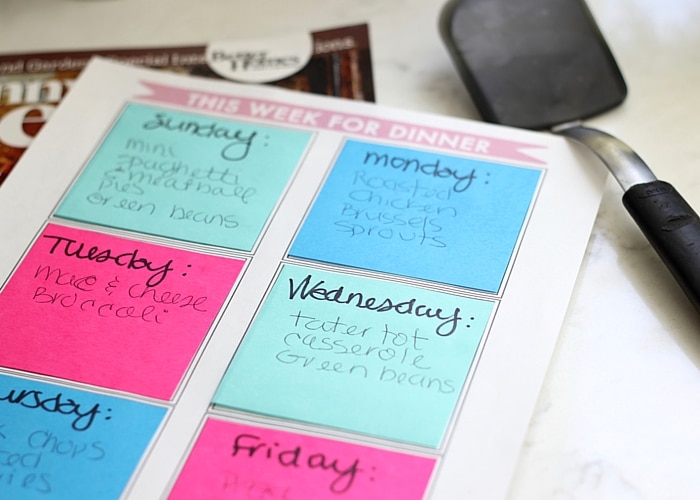 THIS WEEK FOR DINNER
Sunday:
mini
spaghetti
& meatball
pies
Green beans
monday:
Roasted
Chicken
Brussels
Sprouts
Tuesday:
mac & cheese
Broccoli
Wednesday:
tater tot
casserole
Green beans
ursday:
chops
Friday: